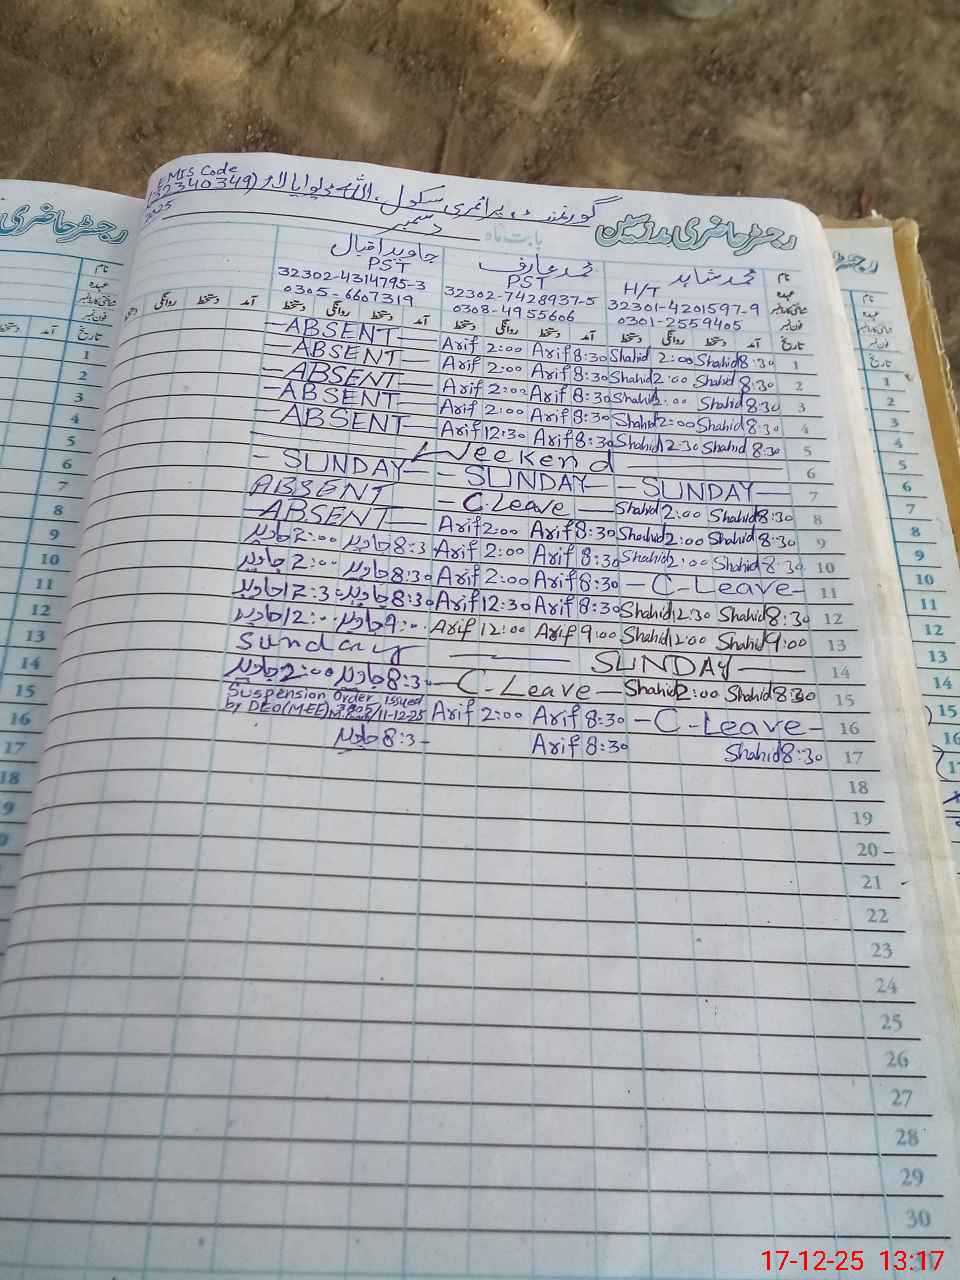 رجسٹر حاضری مدرسین بابت ماہ دسمبر 2025
گورنمنٹ پرائمری سکول
EMIS Code
نام محمد شاہد محمد عارف جاوید اقبال
عہدہ H/T PST PST
32301-4201597-9 32302-7428937-5 32302-4314795-3
فون نمبر 0301-2559405 0308-4955606 0305-6607319
تاریخ آمد دستخط روانگی دستخط آمد دستخط روانگی دستخط آمد دستخط روانگی دستخط آمد دستخط روانگی
-ABSENT- Arif 2:00 Arif 8:30 Shahid 2:00 Shahid 8:30 1
-ABSENT- Arif 2:00 Arif 8:30 Shahid 2:00 Shahid 8:30 2
-ABSENT- Arif 2:00 Arif 8:30 Shahid 2:00 Shahid 8:30 3
-ABSENT- Arif 2:00 Arif 8:30 Shahid 2:00 Shahid 8:30 4
-ABSENT- Arif 12:30 Arif 8:30 Shahid 12:30 Shahid 8:30 5
Weekend 6
-SUNDAY- -SUNDAY- -SUNDAY- 7
ABSENT -C.Leave- Shahid 2:00 Shahid 8:30 8
-ABSENT- Arif 2:00 Arif 8:30 Shahid 2:00 Shahid 8:30 9
جاوید 2:00 جاوید 8:30 Arif 2:00 Arif 8:30 Shahid 2:00 Shahid 8:30 10
جاوید 2:00 جاوید 8:30 Arif 2:00 Arif 8:30 -C-Leave- 11
جاوید 12:30 جاوید 8:30 Arif 12:30 Arif 8:30 Shahid 12:30 Shahid 8:30 12
جاوید 12:00 جاوید 9:00 Arif 12:00 Arif 9:00 Shahid 12:00 Shahid 9:00 13
Sunday SUNDAY 14
جاوید 2:00 جاوید 8:30 -C-Leave- Shahid 2:00 Shahid 8:30 15
Suspension Order issued
by DEO(MEE) /11-12-25 Arif 2:00 Arif 8:30 -C-Leave- 16
جاوید 8:3- Arif 8:30 Shahid 8:30 17
18
19
20
21
22
23
24
25
26
27
28
29
30
17-12-25 13:17